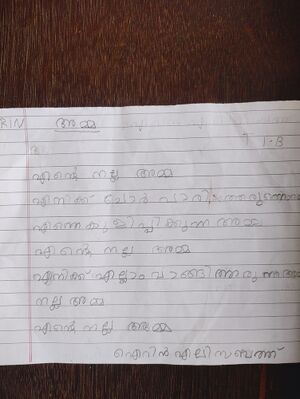 RIN അമ്മ
1-B
എന്റെ നല്ല അമ്മ
എനിക്ക് ചോർ വാരിത്തരുന്ന
എന്നെ കുളിപ്പിക്കുന്ന അമ്മ
എന്റെ നല്ല അമ്മ
എനിക്ക് എല്ലാം വാങ്ങിത്തരുന്ന
നല്ല അമ്മ
എന്റെ നല്ല അമ്മ
ഐറിൻ എലിസബത്ത്